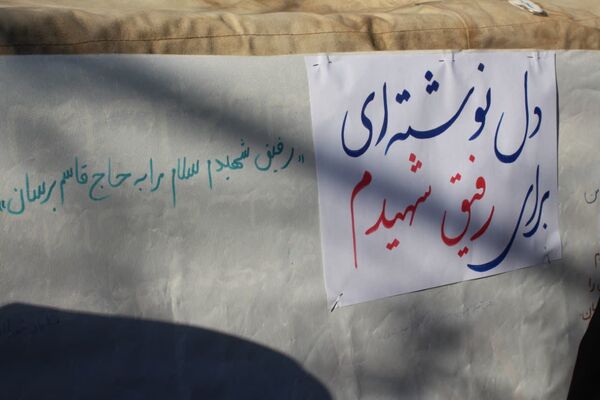 دل نوشته‌ای
برای رفیق شهیدم
"رفیق شهیدم سلام مرا به حاج قاسم برسان"